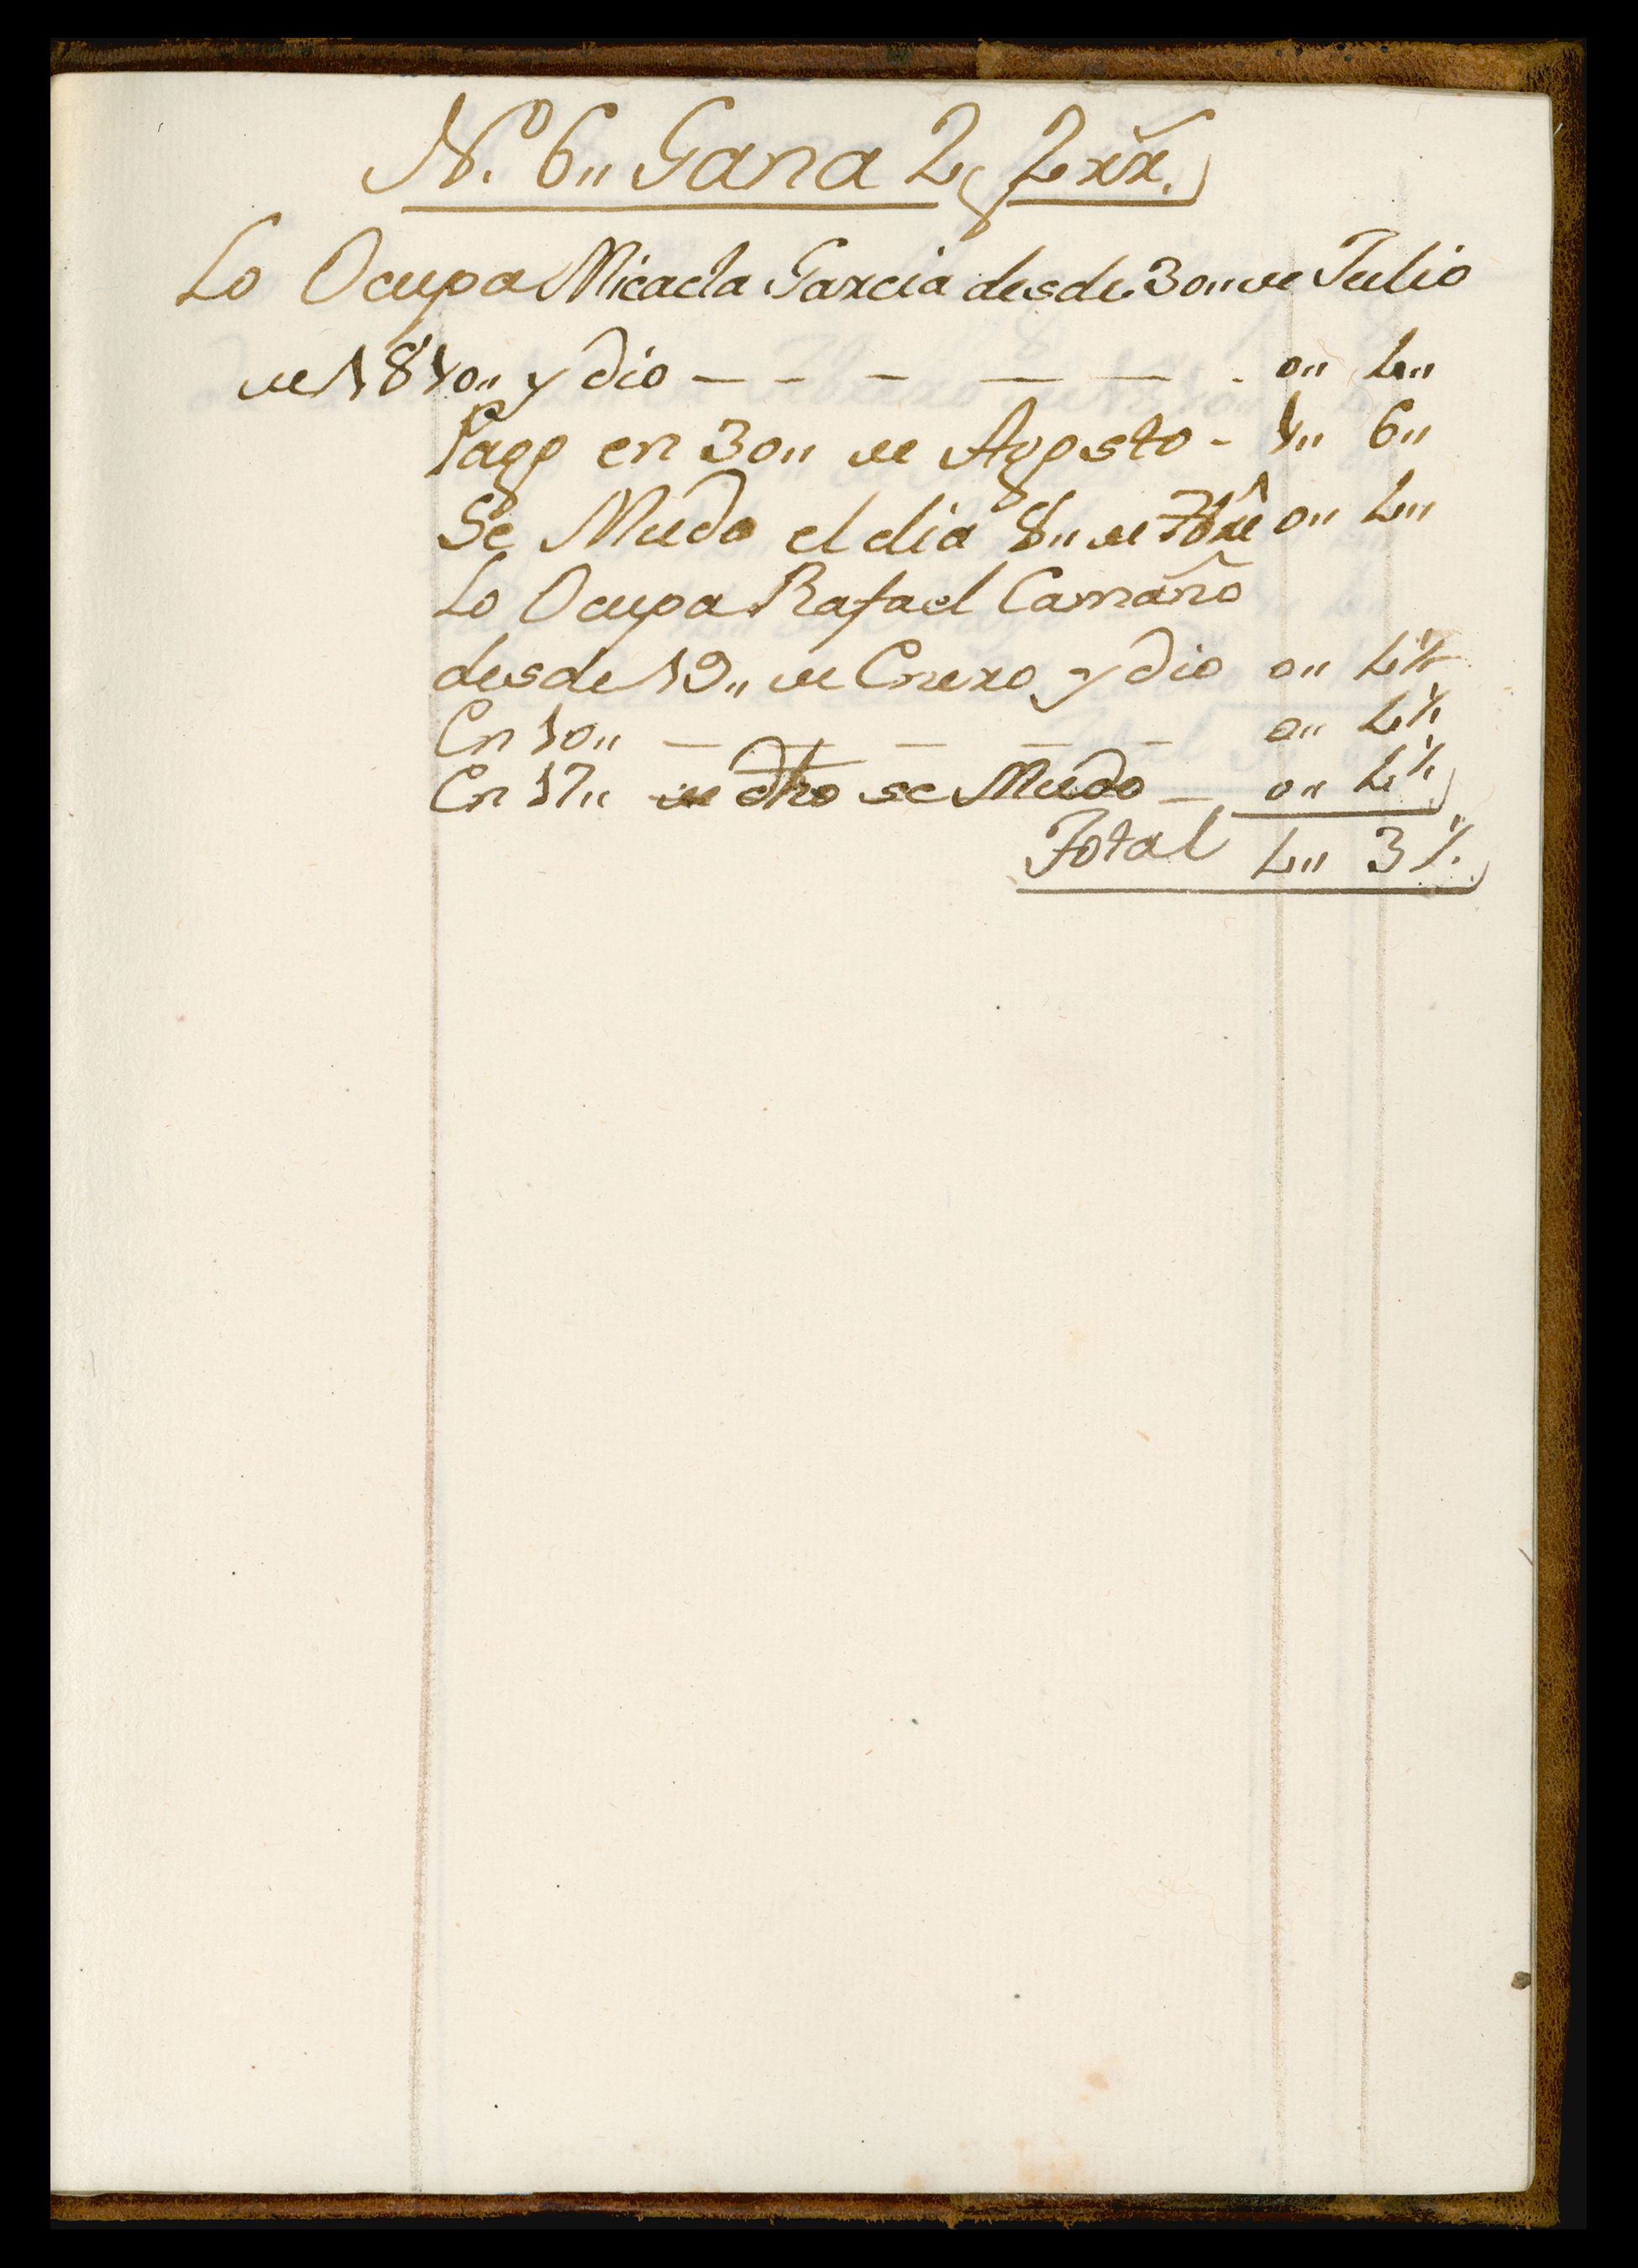 N.º 6,, Gana 2 p 2 rr.
Lo Ocupa Micaela Garcia desde 30,, de Julio
de 1810,, y dio — — — — — - 0,, 4,,
Pago en 30,, de Agosto - 1,, 6,,
Se Mudo el dia 8,, de 7bre 0,, 4,,
Lo Ocupa Rafael Camaño
desde 19,, de Enero y dio 0,, 4½
En 10,, — — — — — 0,, 4½
En 17,, de dho se Mudo — 0,, 4½
Total 4,, 3½